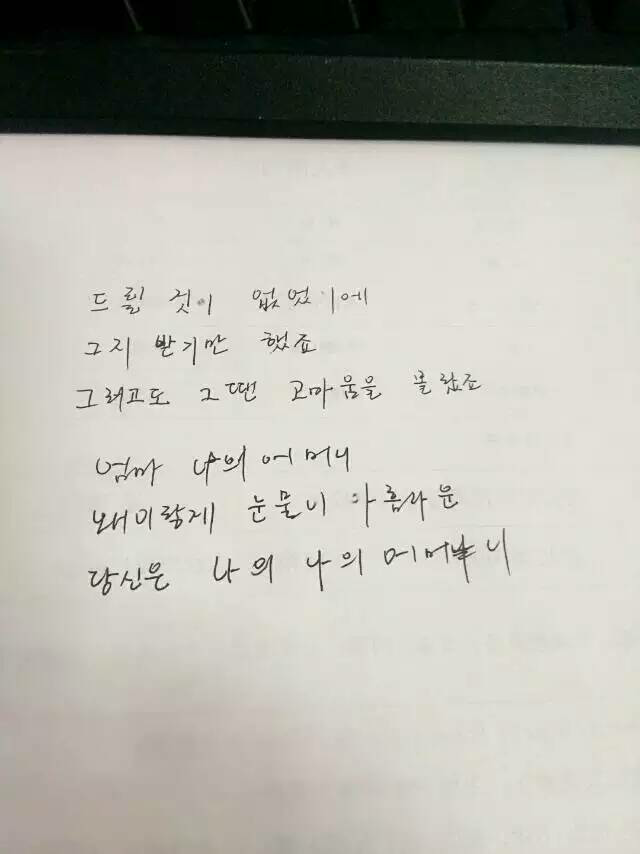 드릴 것이 없었기에
그지 받기만 했죠
그러고도 그땐 고마움을 몰랐죠
엄마 나의 어머니
왜이렇게 눈물이 아름다운
당신은 나의 나의 어머니